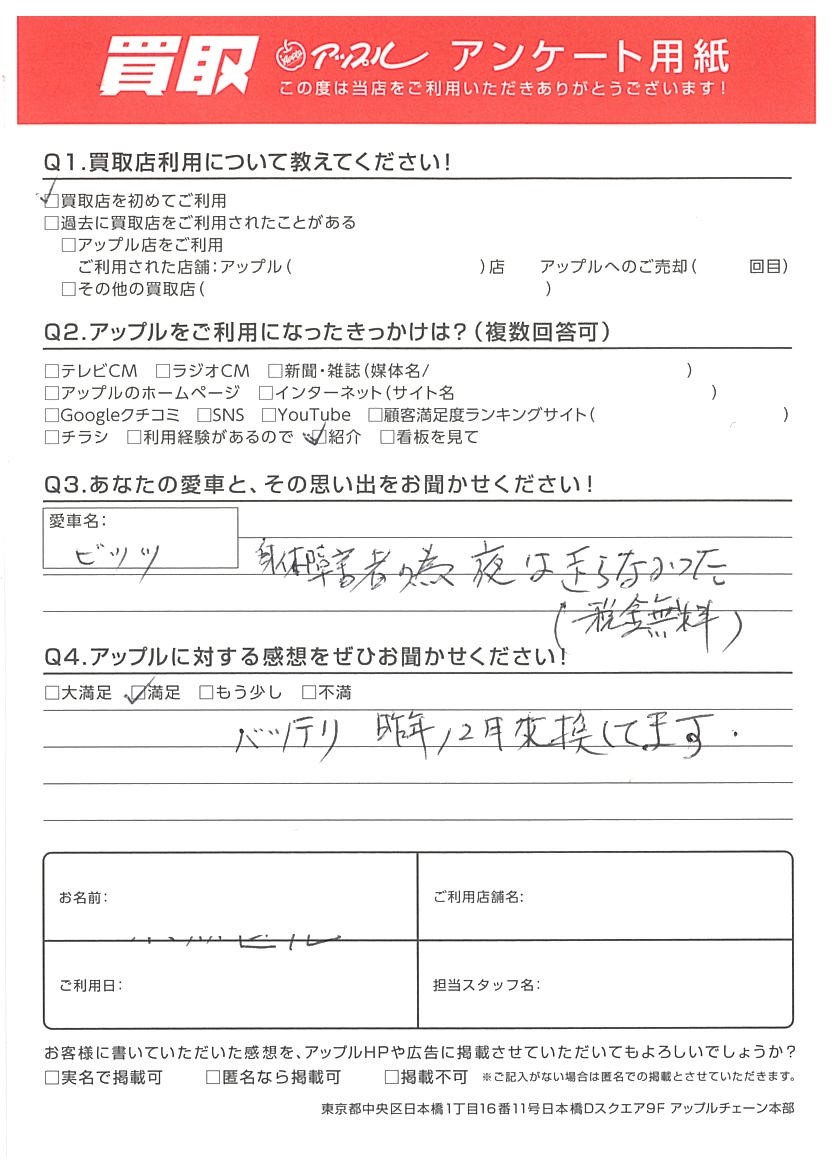 買取 Apple アップル アンケート用紙
この度は当店をご利用いただきありがとうございます!
Q1.買取店利用について教えてください!
☑買取店を初めてご利用
□過去に買取店をご利用されたことがある
□アップル店をご利用
ご利用された店舗:アップル( )店 アップルへのご売却( 回目)
□その他の買取店( )
Q2.アップルをご利用になったきっかけは?(複数回答可)
□テレビCM □ラジオCM □新聞・雑誌(媒体名/ )
□アップルのホームページ □インターネット(サイト名 )
□Googleクチコミ □SNS □YouTube □顧客満足度ランキングサイト( )
□チラシ □利用経験があるので ☑紹介 □看板を見て
Q3.あなたの愛車と、その思い出をお聞かせください!
愛車名:
ビッツ
身体障害者の為 夜は走らなかった
(税金無料)
Q4.アップルに対する感想をぜひお聞かせください!
□大満足 ☑満足 □もう少し □不満
バッテリ 昨年12月交換してます.
お名前:
ご利用店舗名:
ご利用日:
担当スタッフ名:
お客様に書いていただいた感想を、アップルHPや広告に掲載させていただいてもよろしいでしょうか?
□実名で掲載可 □匿名なら掲載可 □掲載不可 ※ご記入がない場合は匿名での掲載とさせていただきます。
東京都中央区日本橋1丁目16番11号日本橋Dスクエア9F アップルチェーン本部